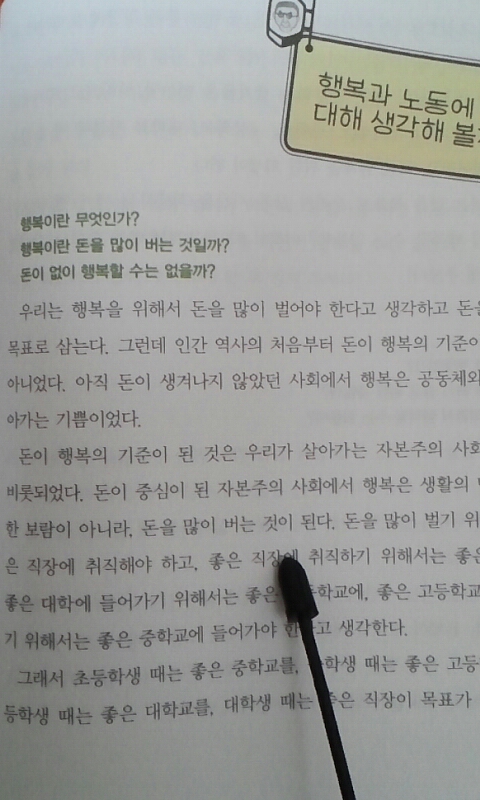 행복과 노동에
대해 생각해
행복이란 무엇인가?
행복이란 돈을 많이 버는 것일까?
돈이 없이 행복할 수는 없을까?
우리는 행복을 위해서 돈을 많이 벌어야 한다고 생각하고
목표로 삼는다. 그런데 인간 역사의 처음부터 돈이 행복의
아니었다. 아직 돈이 생겨나지 않았던 사회에서 행복은
아가는 기쁨이었다.
돈이 행복의 기준이 된 것은 우리가 살아가는 자본주의
비롯되었다. 돈이 중심이 된 자본주의 사회에서 행복은 생활의
한 보람이 아니라, 돈을 많이 버는 것이 된다. 돈을 많이 벌기
은 직장에 취직해야 하고, 좋은 취직하기 위해서는
좋은 대학에 들어가기 위해서는 좋은
기 위해서는 좋은 중학교에 들어가야 생각한다.
그래서 초등학생 때는 좋은 중학교를, 때는 좋은
등학생 때는 좋은 대학교를, 대학생 직장이 목표가